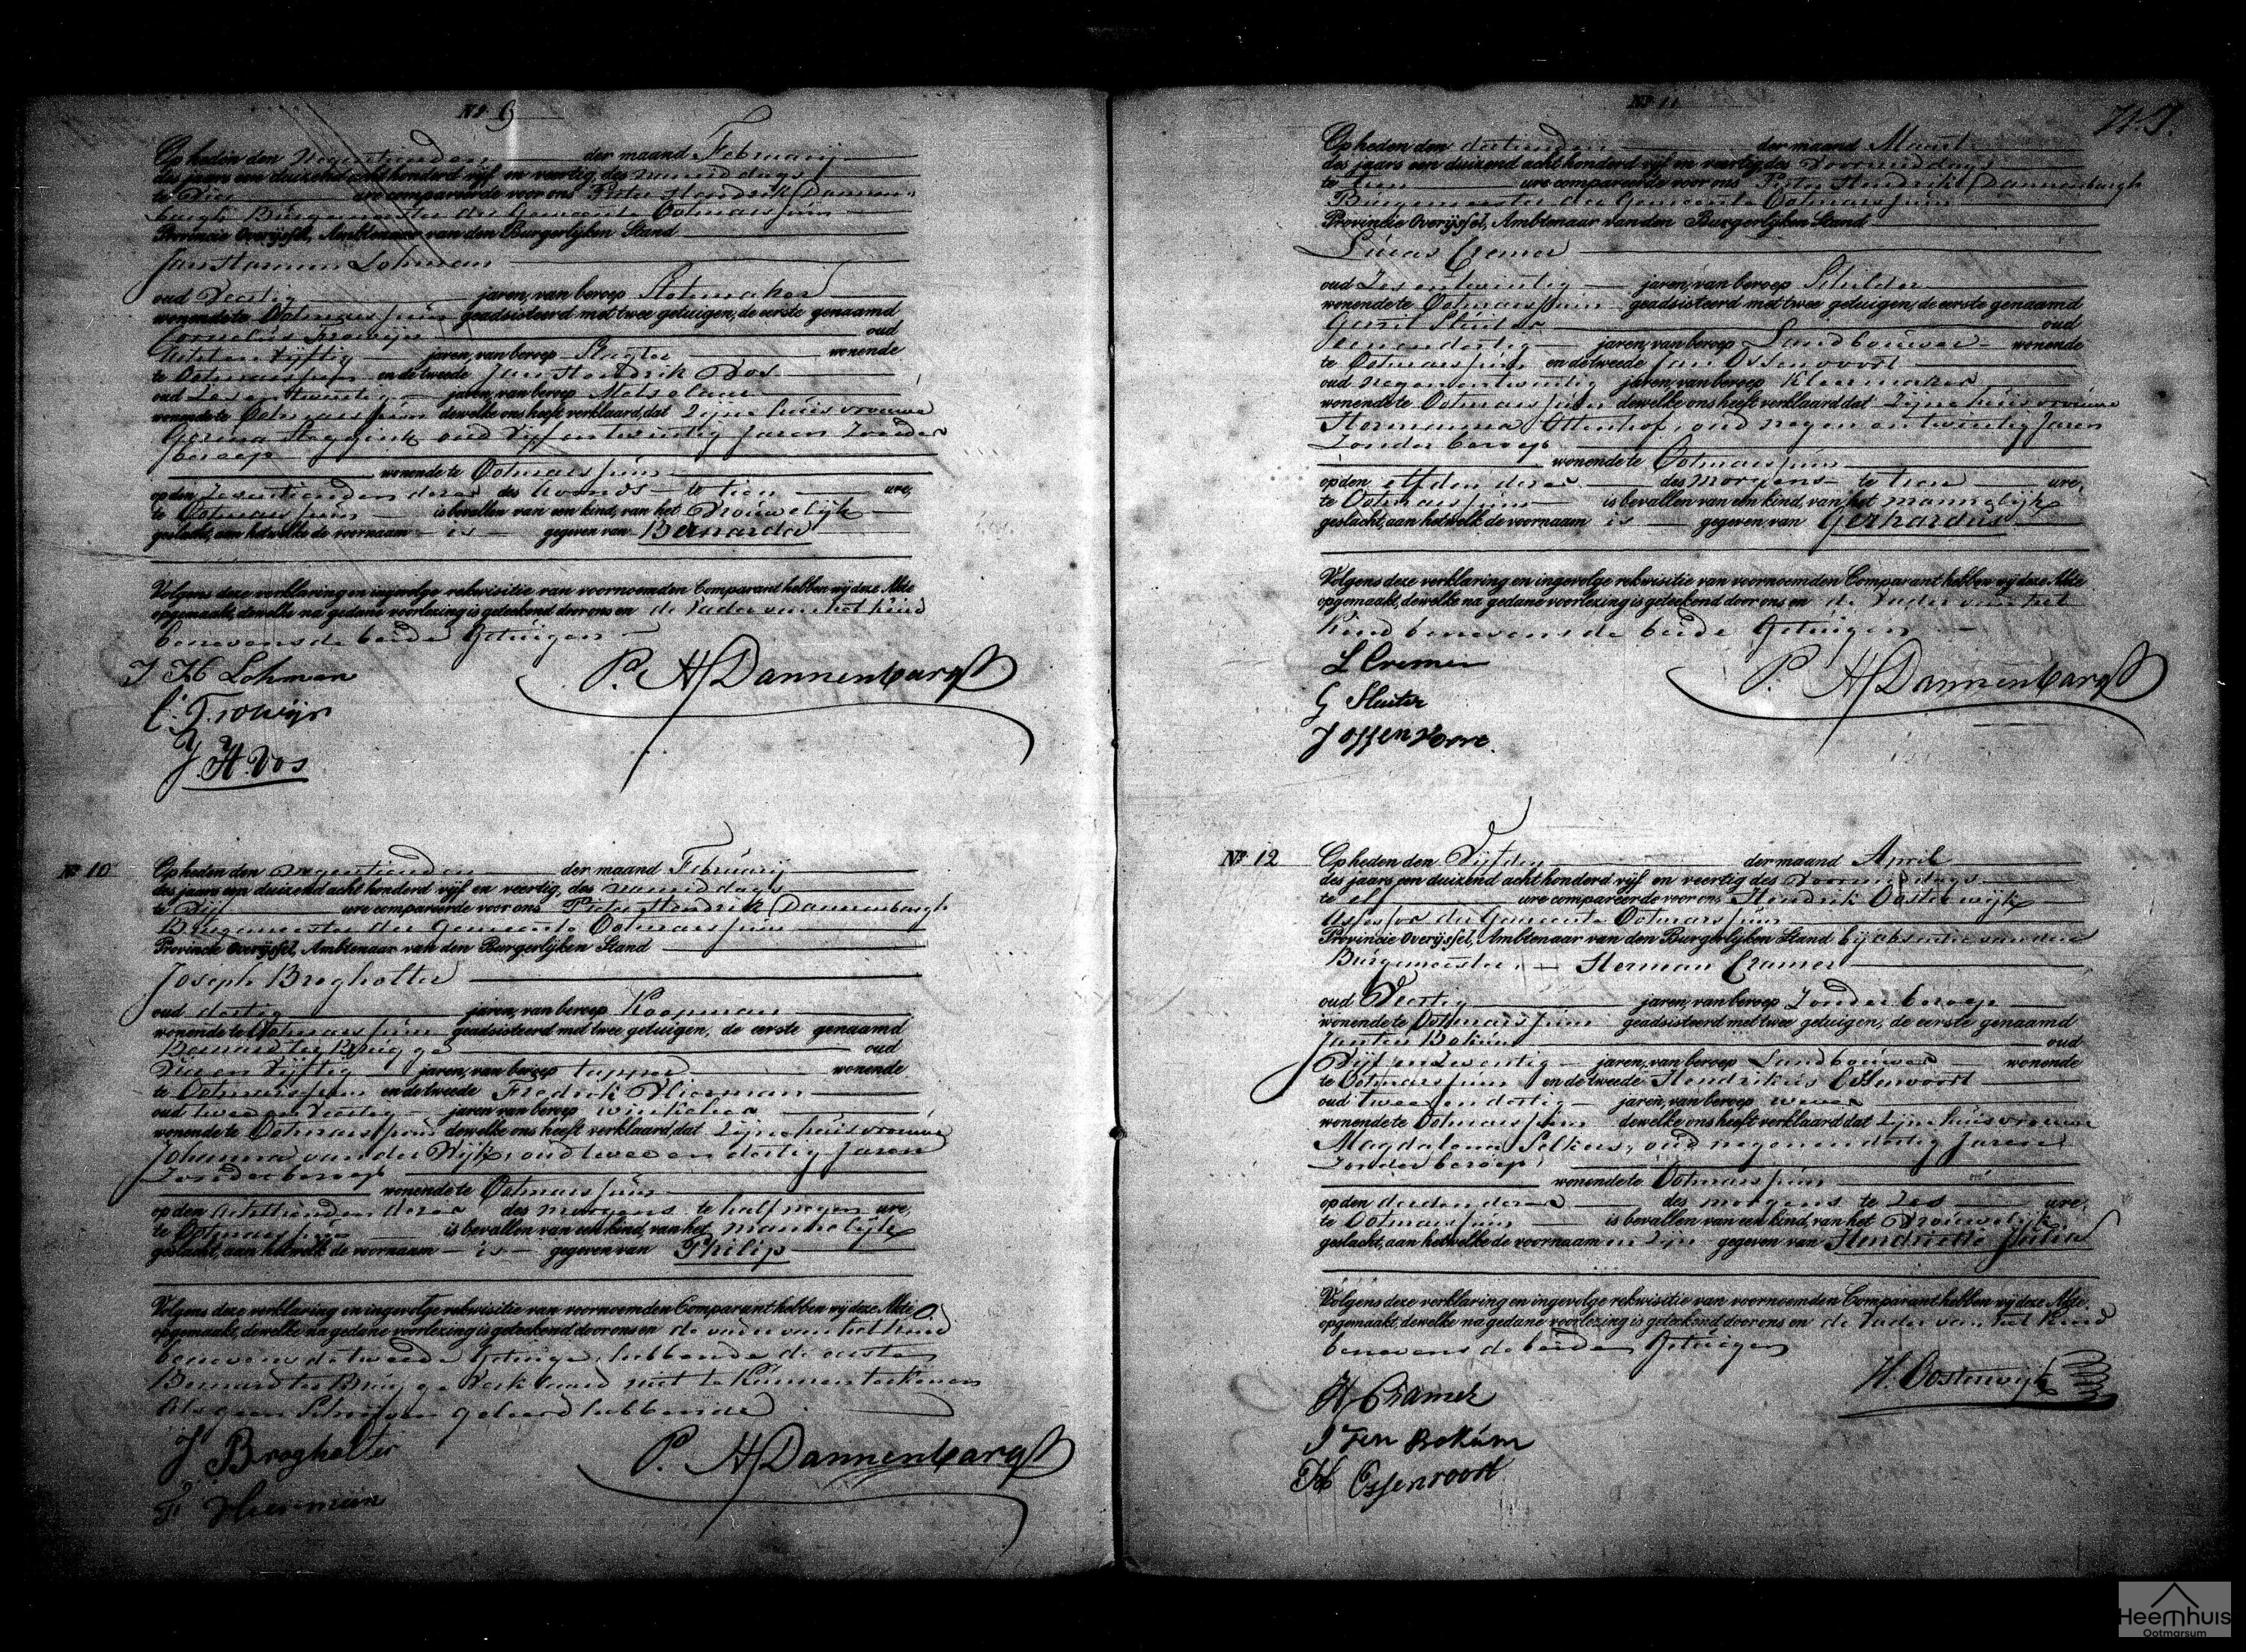 Nº 9
Op heden den Negentienden der maand Februarij
des jaars een duizend acht honderd vijf en veertig, des namiddags
te Vier ure compareerde voor ons Pieter Hendrik Dannen-
bargh Burgemeester der Gemeente Ootmarssum
Provincie Overijssel, Ambtenaar van den Burgerlijken Stand
Jan Harmen Lohman
oud Veertig jaren, van beroep
wonende te Ootmarssum geadsisteerd met twee getuigen, de eerste genaamd
Cornelis Trowijn oud
Acht en Vijftig jaren, van beroep Slagter wonende
te Ootmarssum en de tweede Jan Hendrik Vos
oud Zes en twintig jaren, van beroep Metselaar
wonende te Ootmarssum dewelke ons heeft verklaard, dat Zijne huisvrouwe
Gezina oud Vijf en twintig Jaren Zonder
beroep
wonende te Ootmarssum
op den Zestienden dezer des Avonds te tien ure,
te Ootmarssum is bevallen van een kind, van het Vrouwelijk
geslacht, aan hetwelke de voornaam is gegeven van Bernarda
Volgens deze verklaring en ingevolge rekwisitie van voornoemden Comparant hebben wij deze Akte
opgemaakt, dewelke na gedane voorlezing is geteekend door ons en de Vader van het Kind
benevens de beide Getuigen
J H Lohman
P. H Dannenbargh
C. Trowijn
J. H. Vos
Nº 10
Op heden den Negentienden der maand Februarij
des jaars een duizend acht honderd vijf en veertig, des namiddags
te Vijf ure compareerde voor ons Pieter Hendrik Dannenbargh
Burgemeester der Gemeente Ootmarssum
Provincie Overijssel, Ambtenaar van den Burgerlijken Stand
Joseph Brogholter
oud dertig jaren, van beroep Koopman
wonende te Ootmarssum geadsisteerd met twee getuigen, de eerste genaamd
Bernard ter Brugge oud
Vier en Vijftig jaren, van beroep tapper wonende
te Ootmarssum en de tweede Fredrik Vlierman
oud twee en Veertig jaren van beroep winkelier
wonende te Ootmarssum dewelke ons heeft verklaard, dat Zijne huisvrouwe
Johanna van der Wijk, oud twee en dertig Jaren
Zonder beroep
wonende te Ootmarssum
op den Achttienden dezer des Morgens te half negen ure,
te Ootmarssum is bevallen van een kind, van het Mannelijk
geslacht, aan hetwelk de voornaam is gegeven van Philip
Volgens deze verklaring en ingevolge rekwisitie van voornoemden Comparant hebben wij deze Akte
opgemaakt, dewelke na gedane voorlezing is geteekend door ons en de vader van het kind
benevens de tweede Getuige, hebbende de eerste
Bernard ter Brugge Verklaard niet te Kunnen teekenen
Als geen Schrijven geleerd hebbende
J Brogholter
P. H Dannenbargh
F Vlierman
Nº 11
Op heden den dertienden der maand Maart
des jaars een duizend acht honderd vijf en veertig des Voormiddags
te tien ure compareerde voor ons Pieter Hendrik Dannenbargh
Burgemeester der Gemeente Ootmarssum
Provincie Overijssel, Ambtenaar van den Burgerlijken Stand
Lucas Cremer
oud Zes en twintig jaren, van beroep Schilder
wonende te Ootmarssum geadsisteerd met twee getuigen, de eerste genaamd
Gerrit Sluiter oud
een en dertig jaren, van beroep Landbouwer wonende
te Ootmarssum en de tweede Jan Ossenvoort
oud negen en twintig jaren, van beroep Kleermaker
wonende te Ootmarssum dewelke ons heeft verklaard dat Zijne huisvrouwe
Hermanna oud negen en twintig Jaren
Zonder beroep
wonende te Ootmarssum
op den elfden dezer des Morgens te tien ure,
te Ootmarssum is bevallen van een kind, van het mannelijk
geslacht, aan hetwelk de voornaam is gegeven van Gerhardus
Volgens deze verklaring en ingevolge rekwisitie van voornoemden Comparant hebben wij deze Akte
opgemaakt, dewelke na gedane voorlezing is geteekend door ons en de Vader van het
Kind benevens de beide Getuigen
L Cremer
P. H Dannenbargh
G Sluiter
J Ossenvoort
Nº 12
Op heden den Vijfden der maand April
des jaars een duizend acht honderd vijf en veertig des Voormiddags
te elf ure compareerde voor ons Hendrik Oosterwijk
Assessor der Gemeente Ootmarssum
Provincie Overijssel, Ambtenaar van den Burgerlijken Stand bij absentie van den
Burgemeester, Herman Cramer
oud Veertig jaren, van beroep Zonder beroep
wonende te Ootmarssum geadsisteerd met twee getuigen, de eerste genaamd
Jan ten Bokum oud
Vijf en Zeventig jaren, van beroep Landbouwer wonende
te Ootmarssum en de tweede Hendrikus Ossenvoort
oud twee en dertig jaren, van beroep wever
wonende te Ootmarssum dewelke ons heeft verklaard dat Zijne huisvrouwe
Magdalena oud negen en dertig Jaren
Zonder beroep
wonende te Ootmarssum
op den derden dezer des morgens te Zes ure,
te Ootmarssum is bevallen van een kind, van het Vrouwelijk
geslacht, aan hetwelke de voornaam en Zijn gegeven van Hendrietta Julia
Volgens deze verklaring en ingevolge rekwisitie van voornoemden Comparant hebben wij deze Akte
opgemaakt, dewelke na gedane voorlezing is geteekend door ons en de Vader van het Kind
benevens de beiden Getuigen
H. Oosterwijk
H Cramer
J ten Bokum
H Ossenvoort
Heemhuis
Ootmarsum